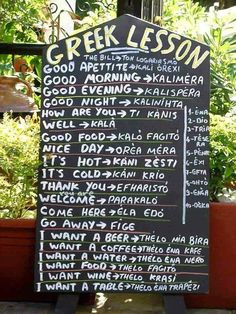 GREEK LESSON
THE BILL→TON LOGARIASMÓ
GOOD APETTITE→KALÍ ÓREXI
GOOD MORNING→KALIMÉRA
GOOD EVENING→KALISPÉRA
GOOD NIGHT→KALINÍHTA
HOW ARE YOU→TI KÁNIS
WELL→KALÁ
GOOD FOOD→KALÓ FAGITÓ
NICE DAY→OREA MÉRA
IT'S HOT→KÁNI ZÉSTI
IT'S COLD→KÁNI KRÍO
THANK YOU→EFHARISTÓ
YOU ARE
WELCOME→PARAKALÓ
COME HERE→ÉLA EDÓ
GO AWAY→FÍGE
I WANT A BEER→THÉLO MIA BÍRA
I WANT A COFFEE→THÉLO ÉNA KAFÉ
I WANT A WATER→THÉLO ÉNA NERÓ
I WANT FOOD→THÉLO FAGITÓ
I WANT WINE→THÉLO KRASÍ
I WANT A TABLE→THÉLO ÉNA TRAPÉZI
1-ÉNA
2-DÍO
3-TRÍA
5-PÉNTE
6-ÉXI
7-EFTÁ
8-OKTÓ
9-ENÉA
10-DÉKA